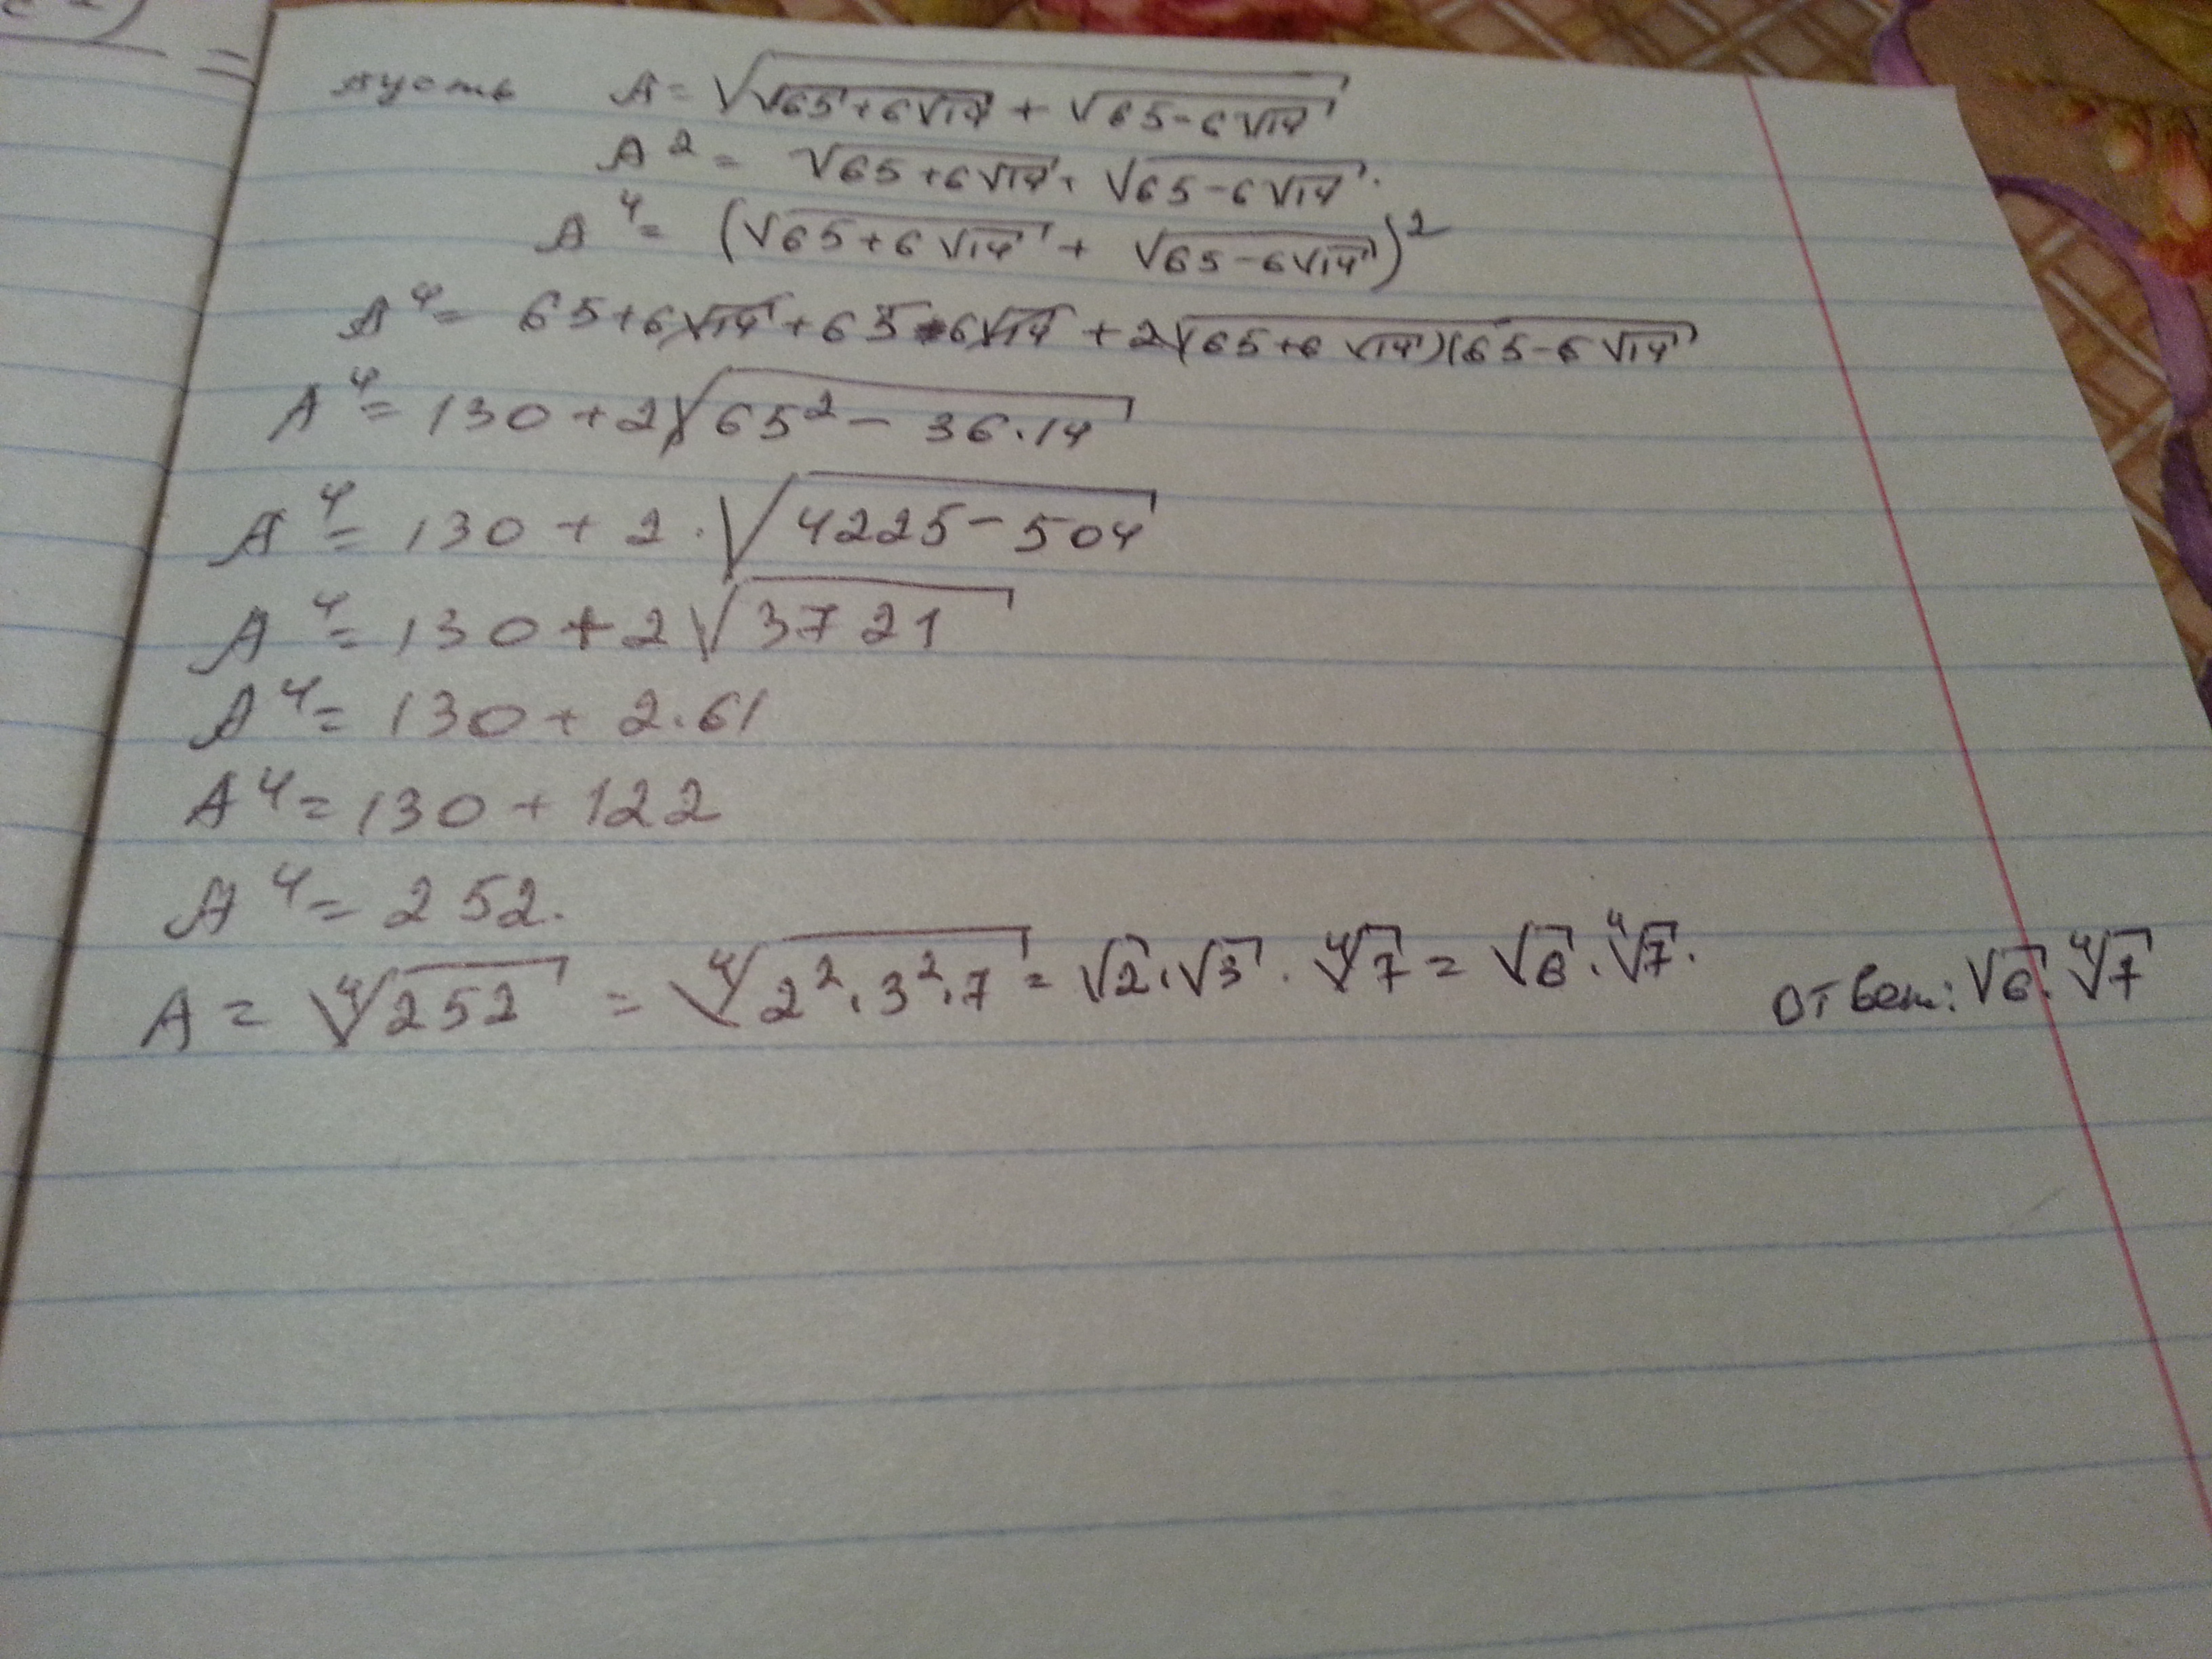 пусть A = √(√(65+6√14) + √(65-6√14))
A² = √(65+6√14) + √(65-6√14).
A⁴ = (√(65+6√14) + √(65-6√14))²
A⁴ = 65+6√14+65-6√14 + 2√((65+6√14)(65-6√14)
A⁴ = 130+2√(65² - 36·14)
A⁴ = 130 + 2·√(4225-504)
A⁴ = 130+2√(3721)
A⁴ = 130 + 2·61
A⁴ = 130 + 122
A⁴ = 252.
A = ⁴√252 = ⁴√(2²·3²·7) = √2·√3·⁴√7 = √6·⁴√7. Ответ: √6·⁴√7